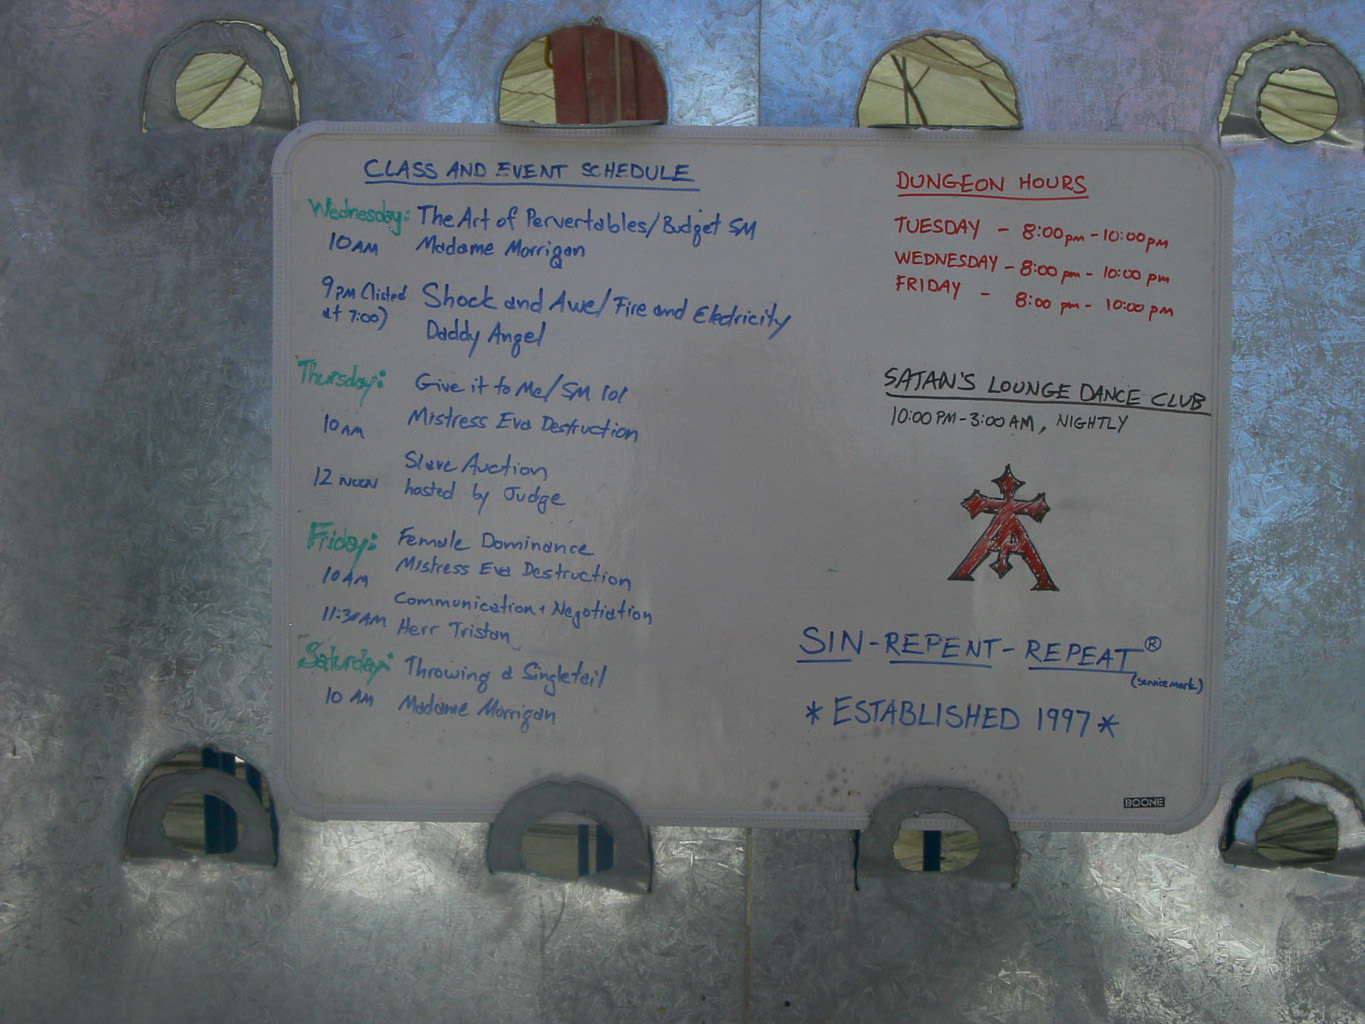 CLASS AND EVENT SCHEDULE
Wednesday: The Art of Pervertables/Budget SM
10 AM Madame Morrigan
9 PM (listed Shock and Awe/Fire and Electricity
at 7:00) Daddy Angel
Thursday: Give it to Me/SM 101
10 AM Mistress Eva Destruction
Slave Auction
12 NOON hosted by Judge
Friday: Female Dominance
10 AM Mistress Eva Destruction
Communication + Negotiation
11:30 AM Herr Tristan
Saturday: Throwing a Singletail
10 AM Madame Morrigan
DUNGEON HOURS
TUESDAY - 8:00 pm - 10:00 pm
WEDNESDAY - 8:00 pm - 10:00 pm
FRIDAY - 8:00 pm - 10:00 pm
SATAN'S LOUNGE DANCE CLUB
10:00 PM - 3:00 AM, NIGHTLY
SIN-REPENT-REPEAT ®
(service mark)
* ESTABLISHED 1997 *
BOONE